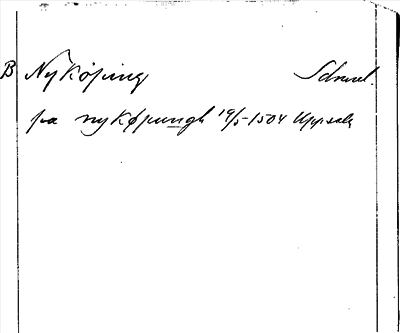 B Nyköping Sdml.
pa nykøpungh 19/5-1504 Uppsala